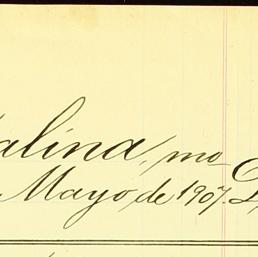 alina, mo
Mayo, de 1907.